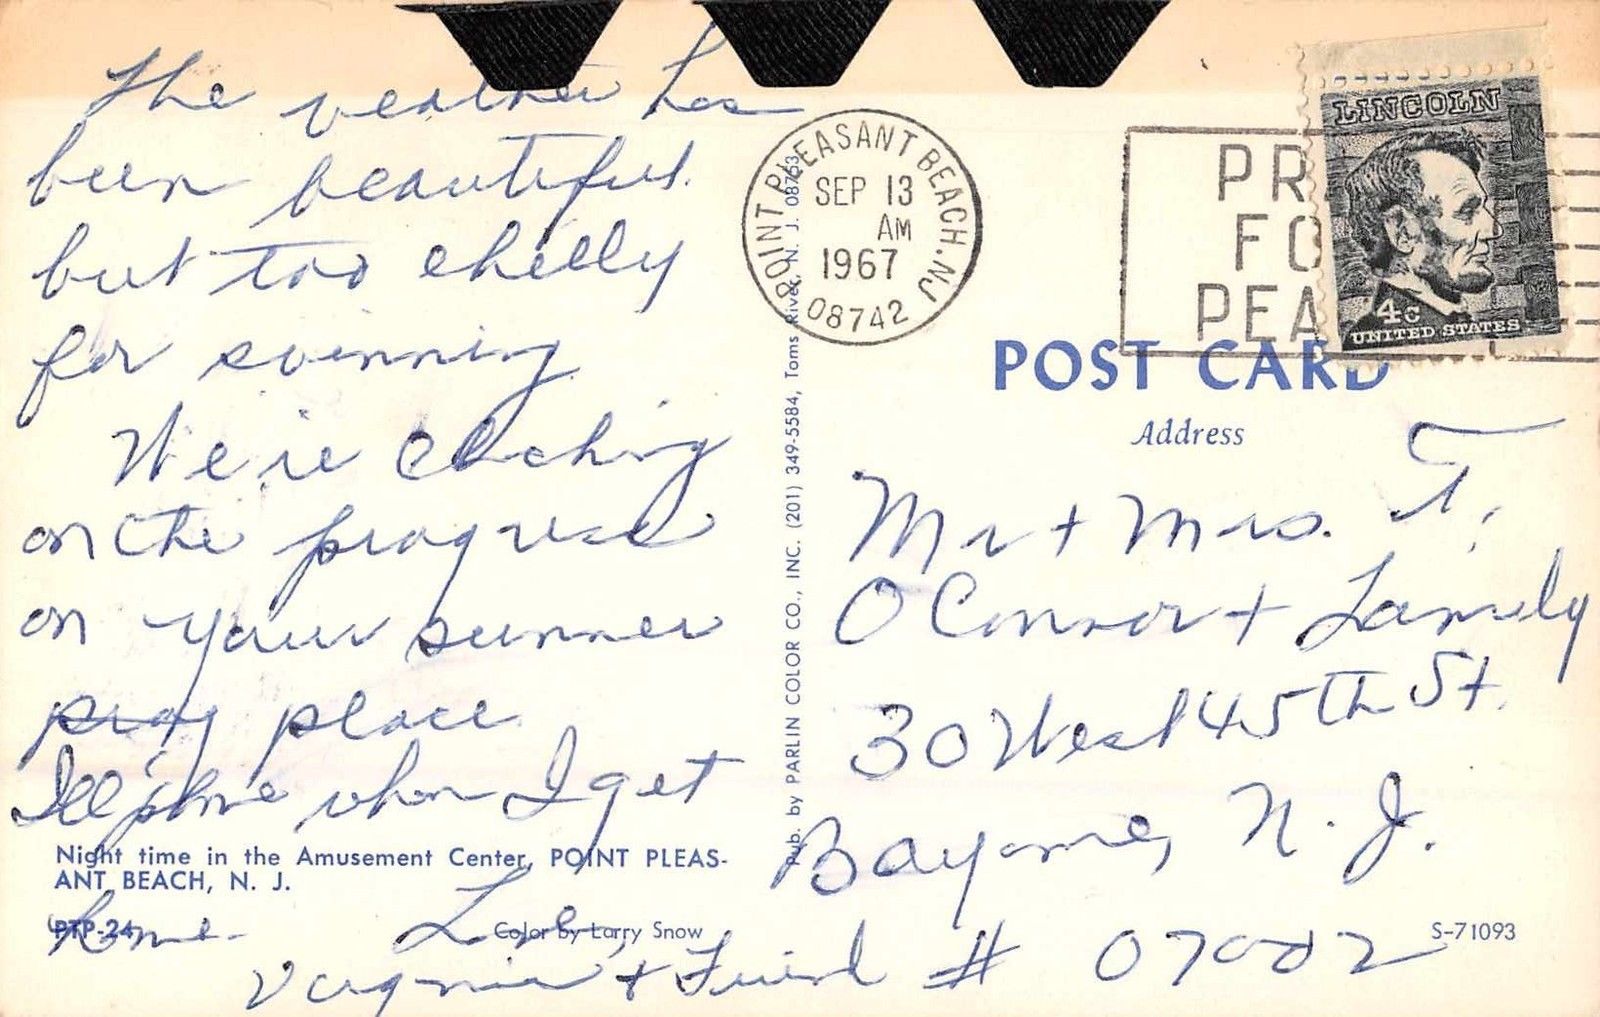 The weather has
been beautiful
but too chilly
for swimming
We're checking
on the progress
on your summer
pray place
I'll phone when I get
home. Love,
Virginia + Friend
Night time in the Amusement Center, POINT PLEAS-
ANT BEACH, N. J.
PTP-24
Color by Larry Snow
Pub. by PARLIN COLOR CO., INC. (201) 349-5584, Toms River, N. J. 08753
POINT PLEASANT BEACH. NJ
SEP 13
AM
1967
08742
PR
FO
PEA
LINCOLN
4c
UNITED STATES
POST CARD
Address
Mr + Mrs. T.
O Connor + Family
30 West 45th St.
Bayonne, N. J.
# 07002
S-71093